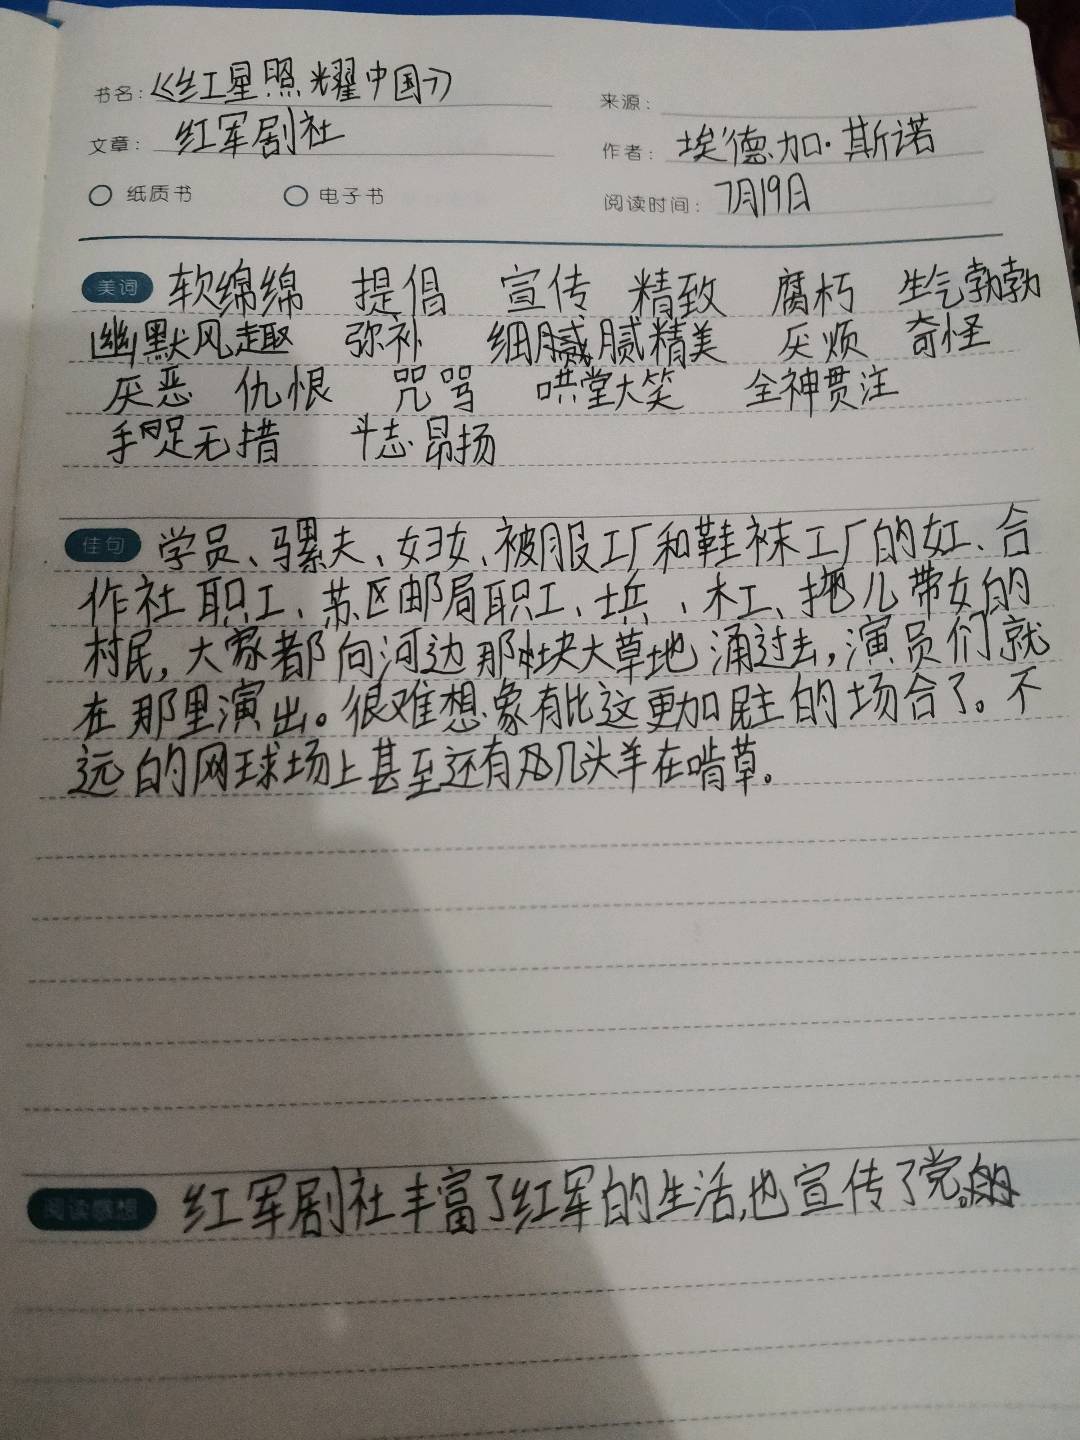 书名：《红星照耀中国》
来源：
文章：红军剧社
作者：埃德加·斯诺
纸质书 电子书
阅读时间：7月19日
美词 软绵绵 提倡 宣传 精致 腐朽 生气勃勃
幽默风趣 弥补 细腻腻精美 厌烦 奇怪
厌恶 仇恨 咒骂 哄堂大笑 全神贯注
手足无措 斗志昂扬
佳句 学员、骡夫、妇女、被服工厂和鞋袜工厂的女工、合
作社职工、苏区邮局职工、士兵、木工、拖儿带女的
村民，大家都向河边那块大草地涌过去，演员们就
在那里演出。很难想象有比这更加民主的场合了。不
远的网球场上甚至还有几头羊在啃草。
阅读感想 红军剧社丰富了红军的生活，也宣传了党。